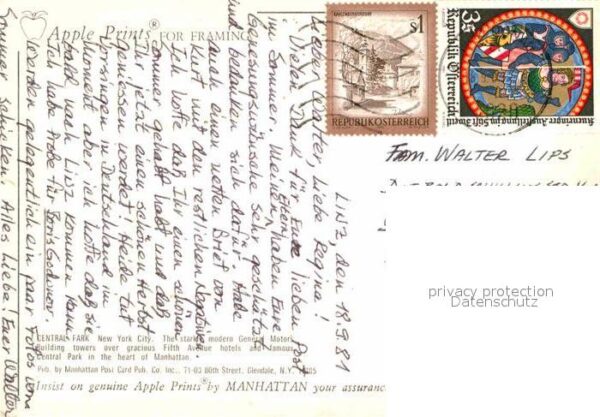 Apple Prints® FOR FRAMING
S1
KAISERGEBIRGE
REPUBLIK ÖSTERREICH
3S
Republik Österreich
Kuenringer Ausstellung im Stift Zwettl
FAM. WALTER LIPS
privacy protection
Datenschutz
LINZ, den 18.9.81
Lieber Walter, liebe Regina!
Vielen Dank für Eure lieben Post
im Sommer. Meine Eltern haben Eure
Genesungswünsche sehr geschätzt
und bedanken sich dafür. Habe
auch einen netten Brief von
Kurt mit den restlichen
Ich hoffe daß Ihr einen schönen
Sommer gehabt habt und daß
Ihr jetzt einen schönen Herbst
genießen werdet! Heide tut
vorsingen in Deutschland im
Moment aber ich hoffe daß sie
bald nach Linz kommen kann.
Ich habe Probe für Boris Godunow.
Werden gelegentlich ein paar Fotos vom
Sommer schicken! Alles Liebe! Euer Walter
CENTRAL PARK New York City. The stark modern General Motors
Building towers over gracious Fifth Avenue hotels and famous
Central Park in the heart of Manhattan.
Pub. by Manhattan Post Card Pub. Co. Inc., 71-03 80th Street, Glendale, N.Y.
Insist on genuine Apple Prints® by MANHATTAN your assurance